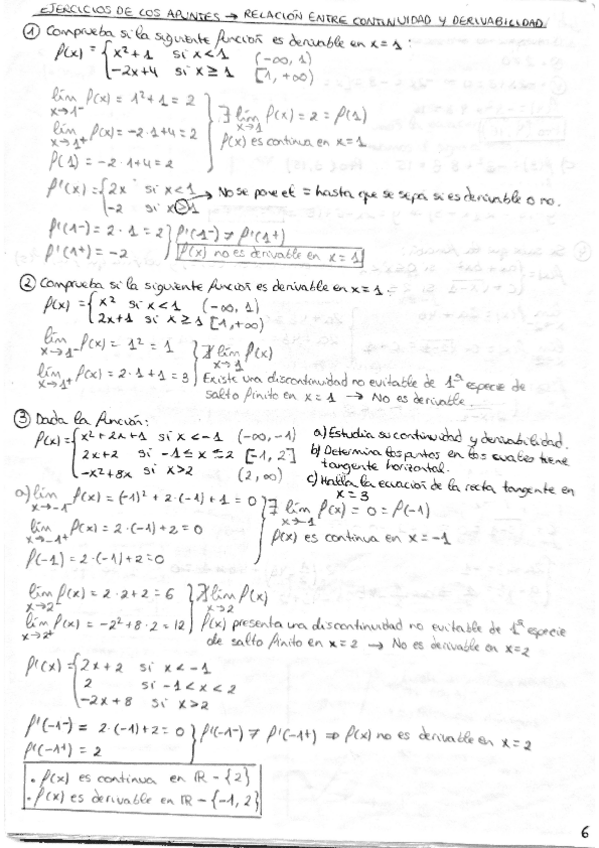 EJERCICIOS DE LOS APUNTES → RELACIÓN ENTRE CONTINUIDAD Y DERIVABILIDAD
① Comprueba si la siguiente función es derivable en x = 1:
f(x) = { x² + 1 si x < 1 (-∞, 1)
-2x+4 si x ≥ 1 [1, +∞)
lím x→1⁻ f(x) = 1² + 1 = 2
lím x→1⁺ f(x) = -2·1+4 = 2
f(1) = -2·1+4 = 2
∃ lím x→1 f(x) = 2 = f(1)
f(x) es continua en x = 1
f'(x) = { 2x si x < 1
-2 si x > 1
→ No se pone el = hasta que se sepa si es derivable o no.
f'(1⁻) = 2·1 = 2
f'(1⁺) = -2
f'(1⁻) ≠ f'(1⁺)
f(x) no es derivable en x = 1
② Comprueba si la siguiente función es derivable en x = 1:
f(x) = { x² si x < 1 (-∞, 1)
2x+1 si x ≥ 1 [1, +∞)
lím x→1⁻ f(x) = 1² = 1
lím x→1⁺ f(x) = 2·1+1 = 3
∄ lím x→1 f(x)
Existe una discontinuidad no evitable de 1ª especie de
salto finito en x = 1 → No es derivable
③ Dada la función:
f(x) = { x²+2x+1 si x < -1 (-∞, -1)
2x+2 si -1 ≤ x ≤ 2 [-1, 2]
-x²+8x si x > 2 (2, ∞)
a) Estudia su continuidad y derivabilidad.
b) Determina los puntos en los cuales tiene
tangente horizontal.
c) Halla la ecuación de la recta tangente en
x = 3
a) lím x→-1⁻ f(x) = (-1)² + 2·(-1) + 1 = 0
lím x→-1⁺ f(x) = 2·(-1)+2 = 0
f(-1) = 2·(-1)+2 = 0
∃ lím x→-1 f(x) = 0 = f(-1)
f(x) es continua en x = -1
lím x→2⁻ f(x) = 2·2+2 = 6
lím x→2⁺ f(x) = -2²+8·2 = 12
∄ lím x→2 f(x)
f(x) presenta una discontinuidad no evitable de 1ª especie
de salto finito en x = 2 → No es derivable en x = 2
f'(x) = { 2x+2 si x < -1
2 si -1 < x < 2
-2x+8 si x > 2
f'(-1⁻) = 2·(-1)+2 = 0
f'(-1⁺) = 2
f'(-1⁻) ≠ f'(-1⁺) ⇒ f(x) no es derivable en x = 2
• f(x) es continua en ℝ - {2}
• f(x) es derivable en ℝ - {-1, 2}
6